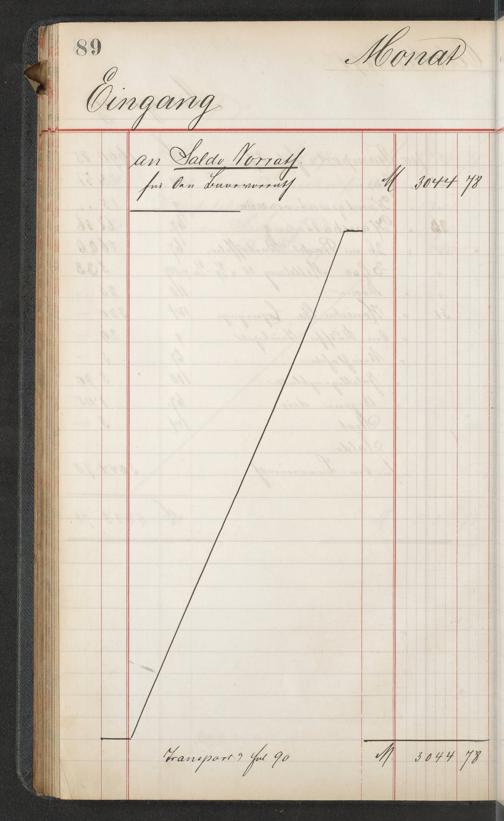 89
Monat
Eingang
an Saldo Vorrath
für den Baarvorrath M 3044 78
Transport fol 90 M 3044 78